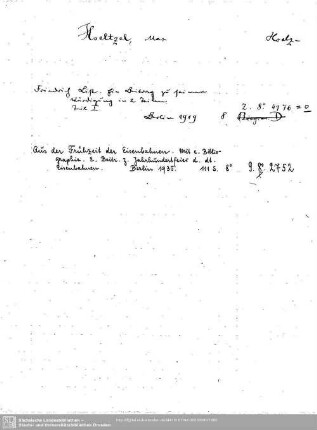 Hoeltzel, Max Hoelz-
Friedrich List. Ein Beitrag zu seiner
Würdigung in 2 Teilen.
Teil I 2. 8° 4976 = D
Berlin 1919 8
Aus der Frühzeit der Eisenbahnen. Mit e. Biblio-
graphie. e. Beitr. z. Jahrhundertfeier d. dt.
Eisenbahnen. Berlin 1935. 111 S. 8° 9. 8° 2752
Sächsische Landesbibliothek -
Staats- und Universitätsbibliothek Dresden